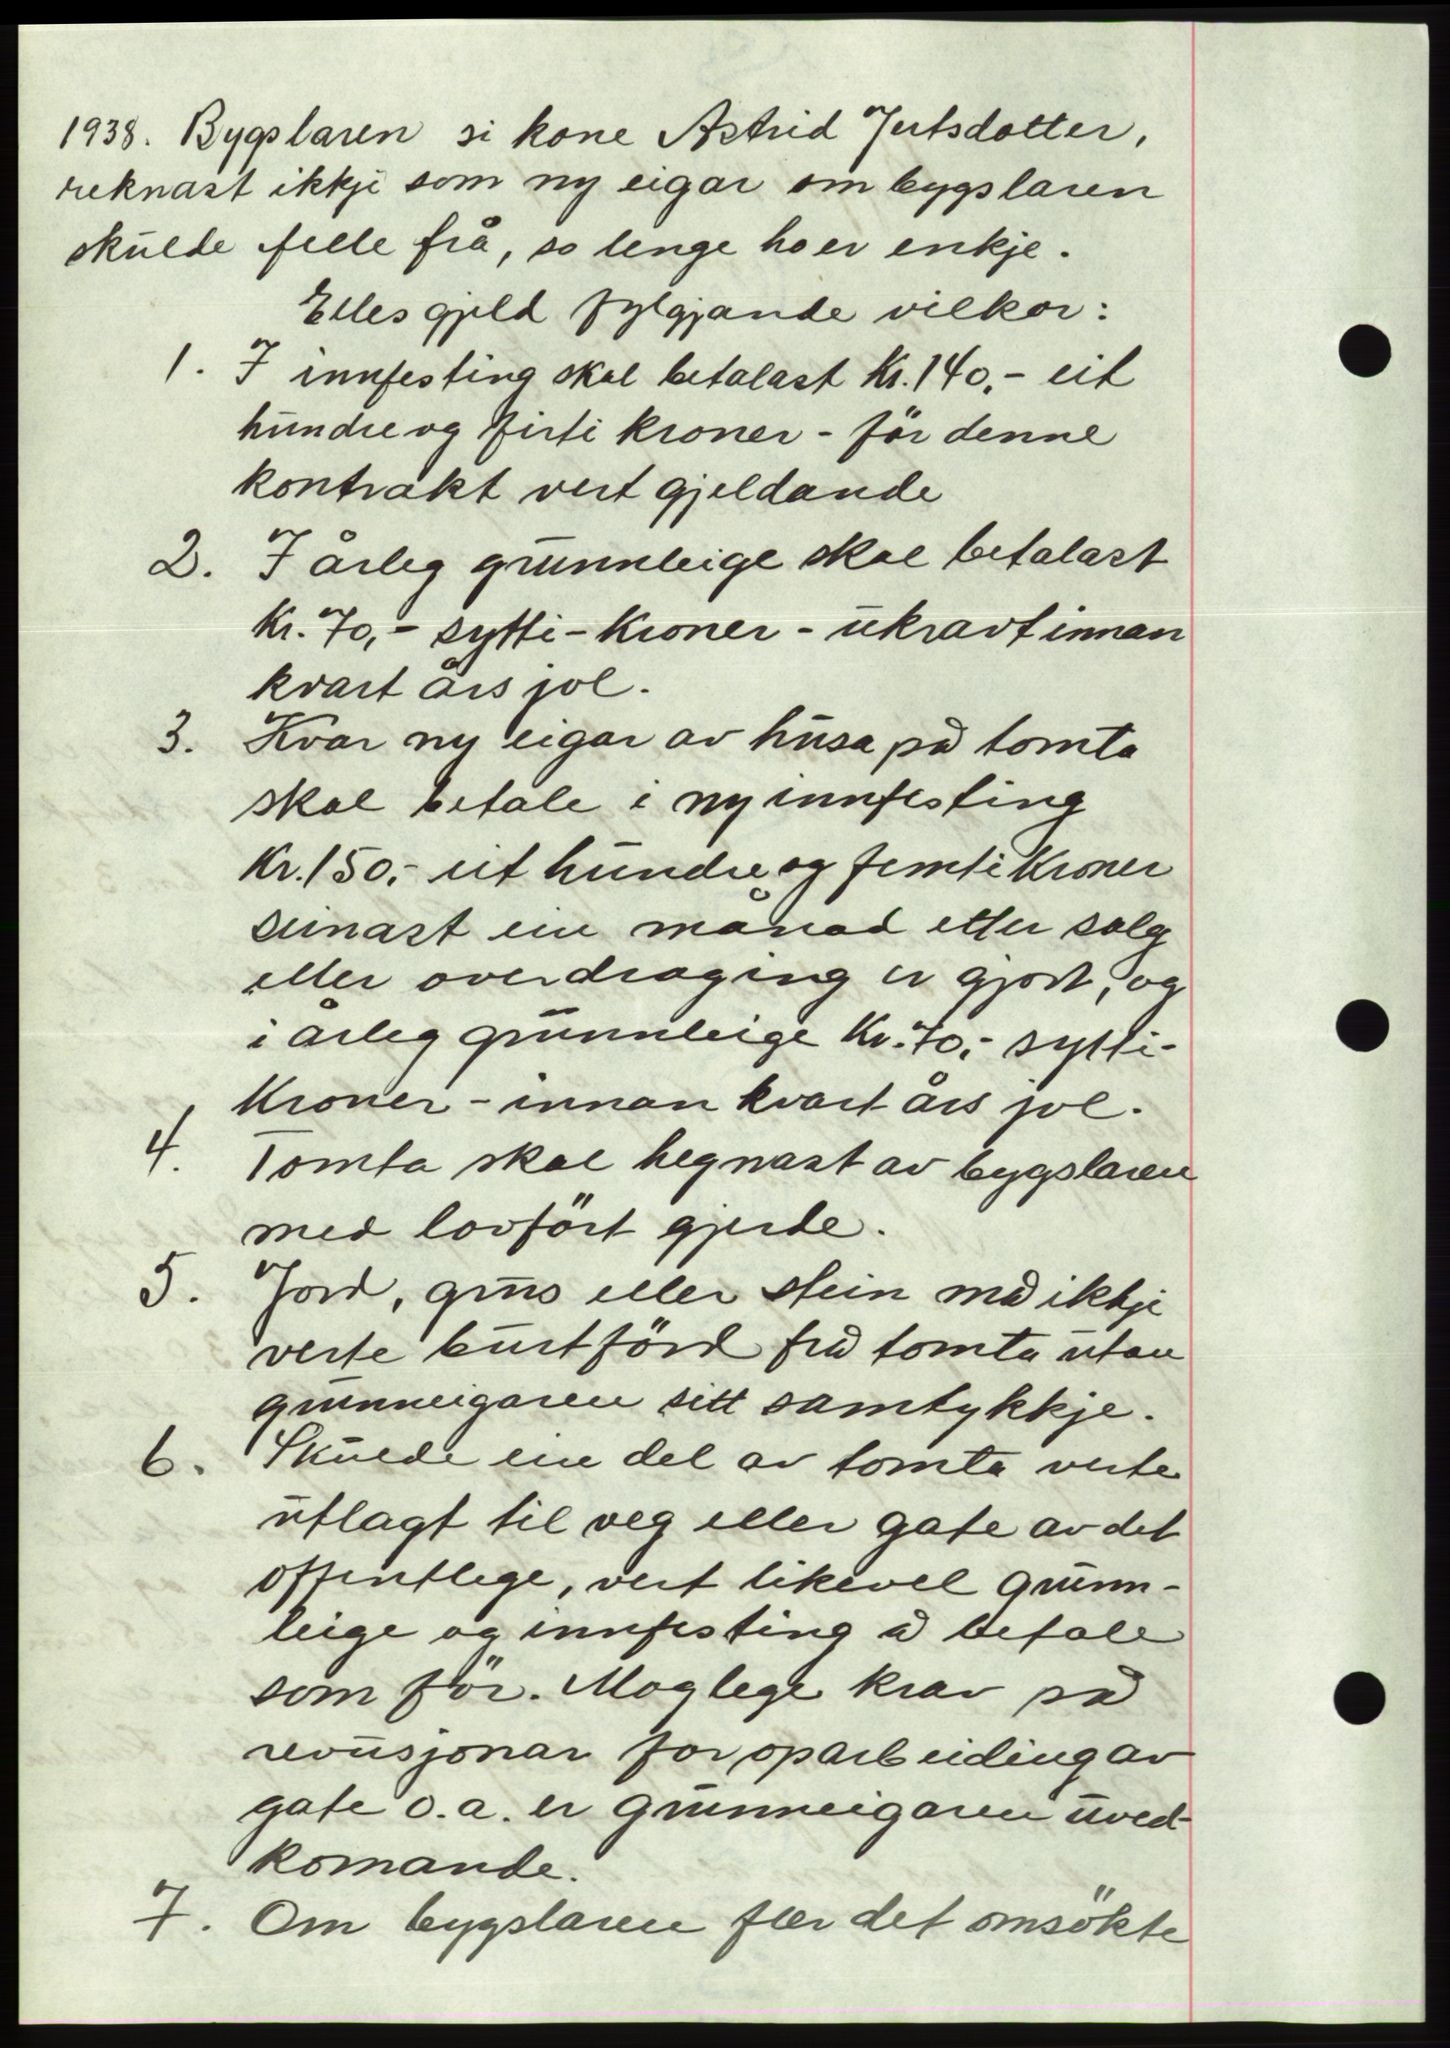 1938. Bygslaren si kone Astrid Jutsdotter,
reknast ikkje som ny eigar om bygslaren
skulde felle frå, so lenge ho er enkje.
Elles gjeld fylgjande vilkor:
1. I innfesting skal betalast Kr. 140,- eit
hundre og firti kroner - för denne
kontrakt vert gjeldande
2. I årleg grunnleige skal betalast
Kr. 70,- sytti - Kroner - ukravt innan
kvart års jol.
3. Kvar ny eigar av husa på tomta
skal betale i ny innfesting
Kr. 150,- eit hundre og femti Kroner
seinast ein månad etter salg
eller overdraging er gjort, og
i årleg grunnleige Kr. 70,- sytti-
Kroner - innan kvart års jol.
4. Tomta skal hegnast av bygslaren
med lovfört gjerde.
5. Jord, grus eller stein må ikkje
verte burtförd frå tomta utan
grunneigaren sitt samtykkje.
6. Skulde ein del av tomta verte
utlagt til veg eller gate av det
offentlege, vert likevel grunn-
leige og innfesting å betale
som för. Moglege krav på
revisjonar for oparbeiding av
gate o.a. er grunneigaren uved-
komande.
7. Om bygslaren fær det omsökte